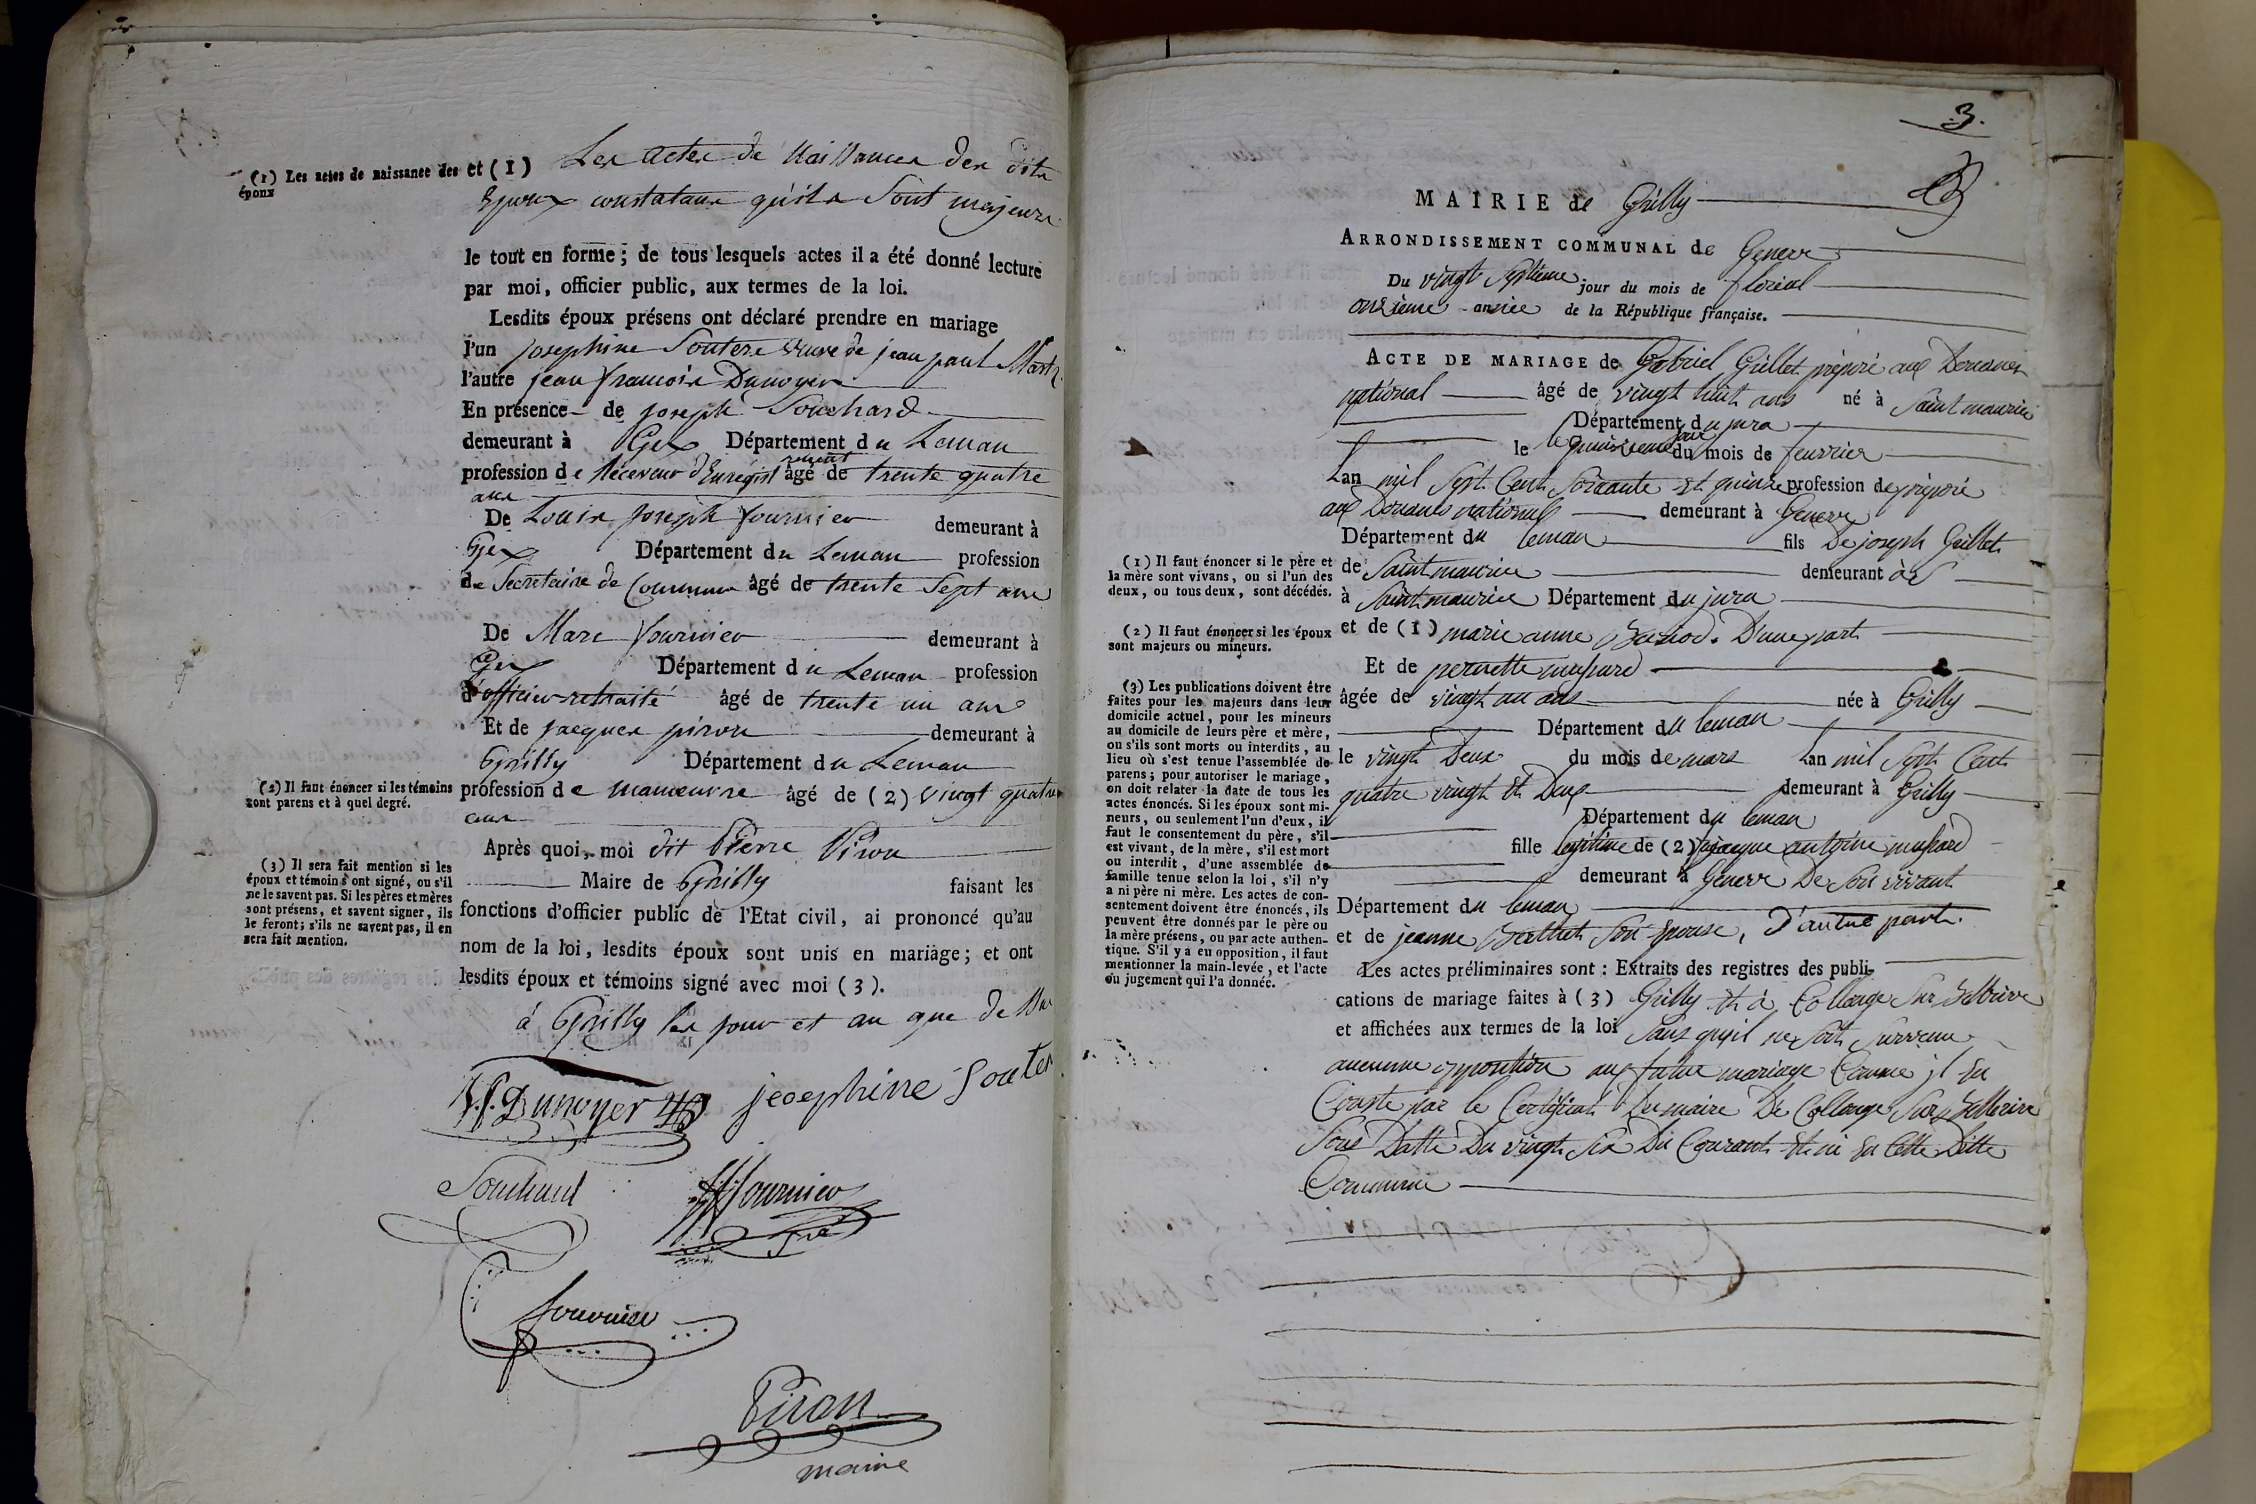 (1) Les actes de naissance des
époux
et (1) Les actes de Naissances des dits
Epoux constatant qu'ils sont majeurs
le tout en forme ; de tous lesquels actes il a été donné lecture
par moi, officier public, aux termes de la loi.
Lesdits époux présens ont déclaré prendre en mariage
l'un josephine Souter veuve de jean paul
l'autre jean francois Dunoyer
En présence de joseph Souchard
demeurant à Gex Département du Leman
profession de Receveur d'Enregist rement âgé de trente quatre
ans
De Louis joseph fournier demeurant à
Gex Département du Leman profession
de Secretaire de Commune âgé de trente Sept ans
De Marc fournier demeurant à
Gex Département du Leman profession
d'officier retraité âgé de trente un ans
Et de jacques piron demeurant à
Grilly Département du Leman
(2) Il faut énoncer si les témoins
sont parens et à quel degré.
profession de manoeuvre âgé de (2) vingt quatre
ans
Après quoi, moi dit Pierre Piron
Maire de Grilly faisant les
fonctions d'officier public de l'Etat civil, ai prononcé qu'au
nom de la loi, lesdits époux sont unis en mariage ; et ont
lesdits époux et témoins signé avec moi (3).
(3) Il sera fait mention si les
époux et témoins ont signé, ou s'il
ne le savent pas. Si les pères et mères
sont présens, et savent signer, ils
le feront ; s'ils ne savent pas, il en
sera fait mention.
à Grilly les jour et an que de
J.f. Dunoyer josephine Souter
Souchard fournier
fournier
Piron
maire
3.
MAIRIE de Grilly
ARRONDISSEMENT COMMUNAL de Geneve
Du vingt Septieme jour du mois de floreal
onzieme année de la République française.
ACTE DE MARIAGE de Gabriel Grillet préposé aux Douanes
national âgé de vingt huit ans né à Saint maurice
Département du jura
le quinzieme jour du mois de fevrier
Lan mil Sept Cent Soixante et quinze profession de préposé
aux Douanes national demeurant à Geneve
Département du leman fils De joseph Grillet
de Saint maurice demeurant à
à Saint maurice Département du jura
et de (1) marie anne D'une part
Et de pernette massard
âgée de vingt un ans née à Grilly
Département du leman
le vingt Deux du mois de mars Lan mil Sept Cent
quatre vingt et Deux demeurant à Grilly
Département du leman
fille legitime de (2) jacque antoine massard
demeurant à Geneve De Son vivant
Département du leman
et de jeanne Berthet Son Epouse, D'autre part.
Les actes préliminaires sont : Extraits des registres des publi-
cations de mariage faites à (3) Grilly et à Collonge Sur Bellerive
et affichées aux termes de la loi Sans quyil ne Soit Survenu
aucunne opposition au future mariage Comme jl En
Conste par le Certificat Du maire De Collonge Sur Bellerive
Sous Datte Du vingt Six Du Courant et ni En Cette Ditte
Commune
(1) Il faut énoncer si le père et
la mère sont vivans, ou si l'un des
deux, ou tous deux, sont décédés.
(2) Il faut énoncer si les époux
sont majeurs ou mineurs.
(3) Les publications doivent être
faites pour les majeurs dans leur
domicile actuel, pour les mineurs
au domicile de leurs père et mère,
ou s'ils sont morts ou interdits, au
lieu où s'est tenue l'assemblée de
parens ; pour autoriser le mariage,
on doit relater la date de tous les
actes énoncés. Si les époux sont mi-
neurs, ou seulement l'un d'eux, il
faut le consentement du père, s'il
est vivant, de la mère, s'il est mort
ou interdit, d'une assemblée de
famille tenue selon la loi, s'il n'y
a ni père ni mère. Les actes de con-
sentement doivent être énoncés, ils
peuvent être donnés par le père ou
la mère présens, ou par acte authen-
tique. S'il y a eu opposition, il faut
mentionner la main-levée, et l'acte
ou jugement qui l'a donnée.